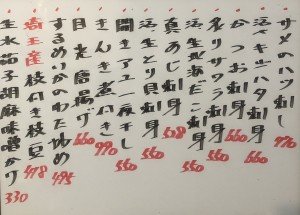 サメのハツ刺し 770
活〆キハタ刺身
かつお刺身 660
炙りサワラ刺身 550
生北海だこ刺身 550
真あじ刺身 528
活生とり貝刺身 550
開きアユ一夜干し 550
きんき 990
目光唐揚げ 660
するめいかのわた炒め 495
埼玉産 枝付き枝豆 418
生水茄子胡麻味噌かけ 330